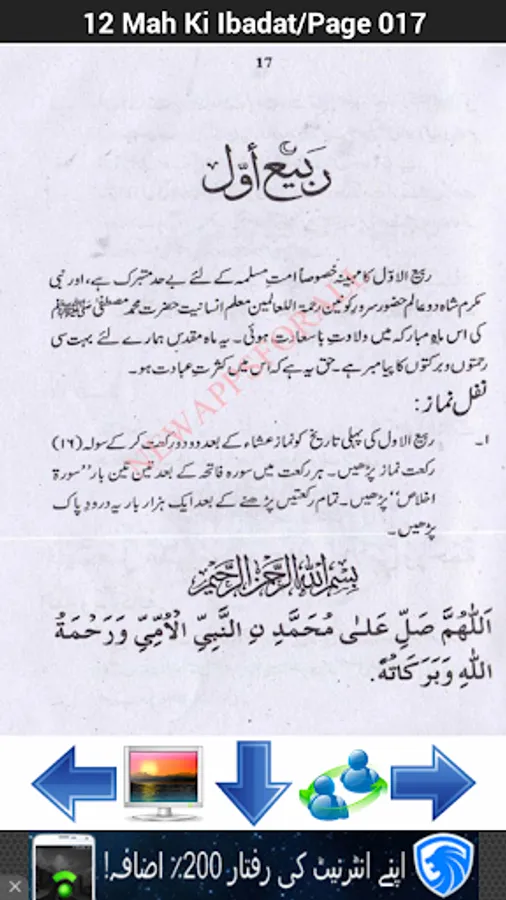 12 Mah Ki Ibadat/Page 017
17
ربیع اوّل
ربیع الاوّل کا مہینہ خصوصاً امتِ مسلمہ کے لئے بے حد متبرک ہے، اور نبی
مکرم شاہِ دو عالم حضور سرورِ کونین رحمۃ اللعالمین معلم انسانیت حضرت محمد مصطفیٰ ﷺ
کی اس ماہِ مبارکہ میں ولادت با سعادت ہوئی۔ یہ ماہ مقدس ہمارے لئے بہت سی
رحمتوں و برکتوں کا پیامبر ہے۔ حق یہ ہے کہ اس میں کثرتِ عبادت ہو۔
نفل نماز:
۱۔ ربیع الاول کی پہلی تاریخ کو نماز عشاء کے بعد دو دو رکعت کر کے سولہ (۱۶)
رکعت نماز پڑھیں۔ ہر رکعت میں سورہ فاتحہ کے بعد تین تین بار "سورۃ
اخلاص" پڑھیں۔ تمام رکعتیں پڑھنے کے بعد ایک ہزار بار یہ درودِ پاک
پڑھیں۔
بِسْمِ اللهِ الرَّحْمٰنِ الرَّحِيْمِ
اَللّٰهُمَّ صَلِّ عَلٰى مُحَمَّدِ نِ النَّبِيِّ الْاُمِّيِّ وَرَحْمَةُ
اللهِ وَبَرَكَاتُهٗ.
NEWAPPSFORALL
اپنے انٹرنیٹ کی رفتار 200٪ اضافہ!